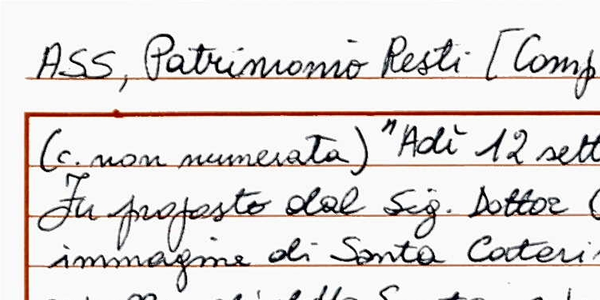 ASS, Patrimonio Resti [Comp
(c. non numerata) "Adì 12 sett
Fu proposto dal Sig. Dottor (
immagine di Santa Cateri